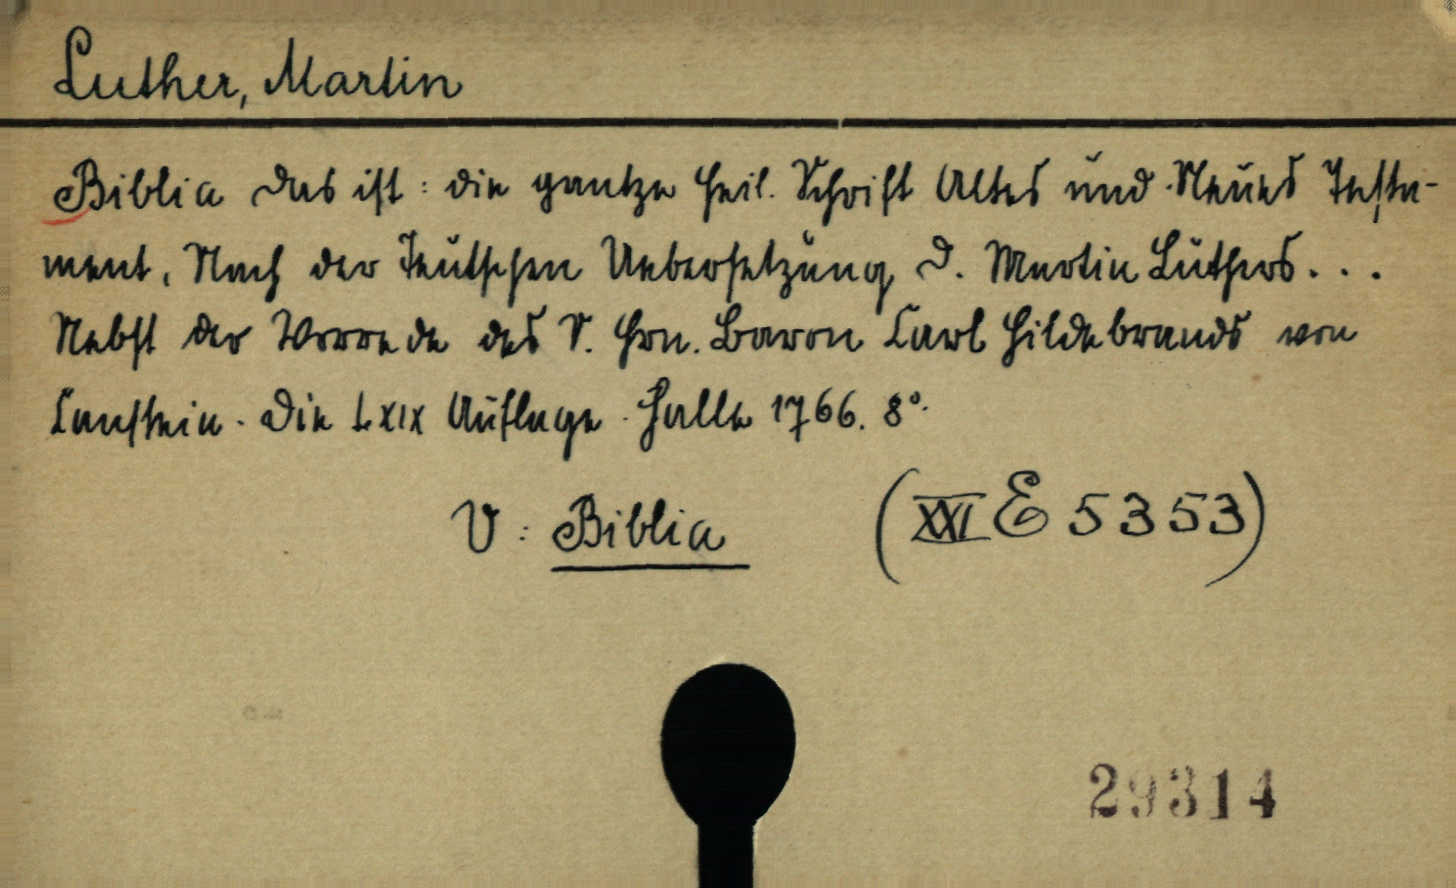 Luther, Martin
Biblia das ist: die gantze heil. Schrift Altes und Neues Testa-
ment, Nach der Teutschen Uebersetzung D. Martin Luthers...
Nebst der Vorrede des S. Hrn. Baron Carl Hildebrands von
Canstein. Die LXIX Auflage. Halle 1766. 8°.
V: Biblia (XXI E 5353)
29314